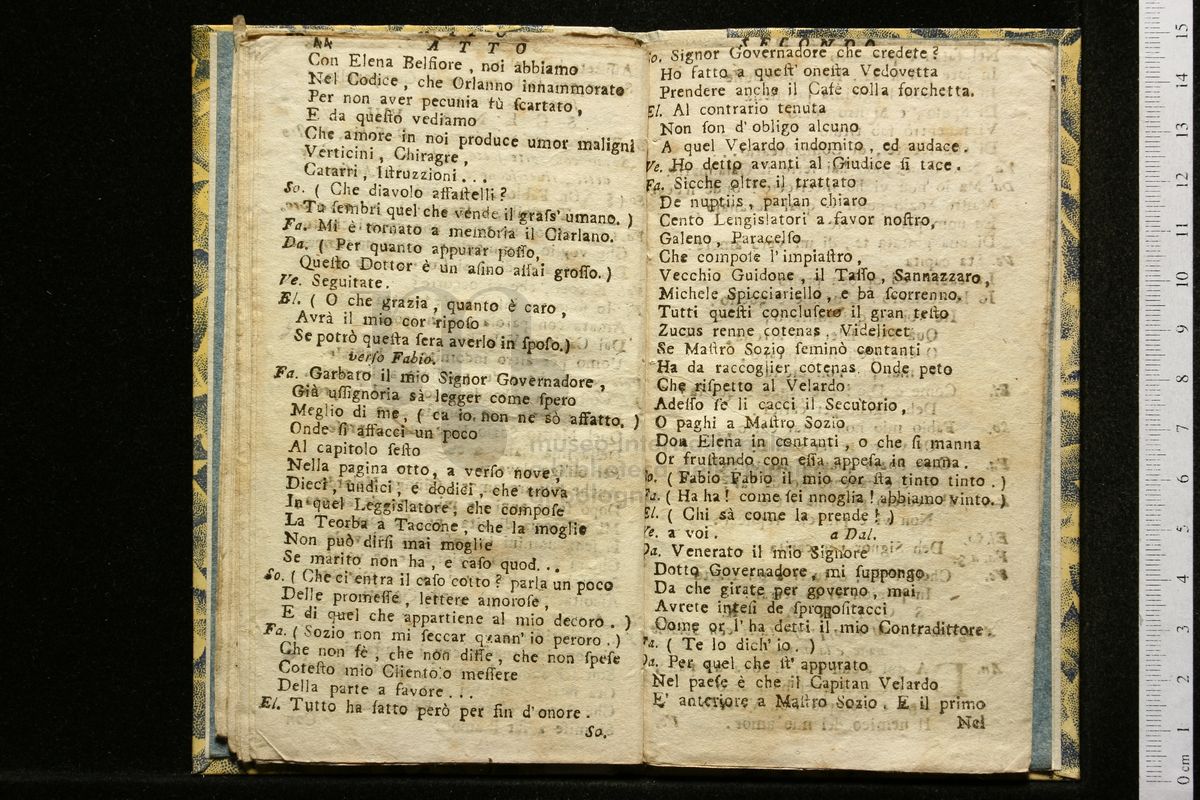 44
ATTO
Con Elena Belfiore, noi abbiamo
Nel Codice, che Orlanno innammorato
Per non aver pecunia fù ſcartato,
E da queſto vediamo
Che amore in noi produce umor maligni
Verticini, Chiragre,
Catarri, Iſtruzzioni...
So. ( Che diavolo affaſtelli?
Tu ſembri quel che vende il graſs' umano. )
Fa. Mi è tornato a memoria il Ciarlano.
Da. ( Per quanto appurar poſſo,
Queſto Dottor è un aſino aſſai groſſo. )
Ve. Seguitate.
El. ( O che grazia, quanto è caro,
Avrà il mio cor ripoſo
Se potrò queſta ſera averlo in ſpoſo.)
verſo Fabio.
Fa. Garbato il mio Signor Governadore,
Già uſſignoria sà legger come ſpero
Meglio di me, ( ca io non ne sò affatto. )
Onde ſi affacci un poco
Al capitolo ſeſto
Nella pagina otto, a verſo nove,
Dieci, undici, e dodici, che trova
In quel Leggislatore, che compoſe
La Teorba a Taccone, che la moglie
Non può dirſi mai moglie
Se marito non ha, e caſo quod...
So. ( Che ci entra il caſo cotto? parla un poco
Delle promeſſe, lettere amoroſe,
E di quel che appartiene al mio decoro. )
Fa. ( Sozio non mi ſeccar quann' io peroro. )
Che non fè, che non diſſe, che non ſpeſe
Coteſto mio Cliento o meſſere
Della parte a favore...
El. Tutto ha fatto però per fin d'onore.
So.
SECONDO
So. Signor Governadore che credete?
Ho fatto a queſt' oneſta Vedovetta
Prendere anche il Cafè colla forchetta.
El. Al contrario tenuta
Non ſon d'obligo alcuno
A quel Velardo indomito, ed audace.
Ve. Ho detto avanti al Giudice ſi tace.
Fa. Sicche oltre il trattato
De nuptiis, parlan chiaro
Cento Lengislatori a favor noſtro,
Galeno, Paracelſo
Che compoſe l'impiaſtro,
Vecchio Guidone, il Taſſo, Sannazzaro,
Michele Spicciariello, e ba ſcorrenno.
Tutti queſti concluſero il gran teſto
Zucus renne cotenas. Videlicet
Se Maſtro Sozio ſeminò contanti
Ha da raccoglier cotenas. Onde peto
Che riſpetto al Velardo
Adeſſo ſe li cacci il Secutorio,
O paghi a Maſtro Sozio
Don Elena in contanti, o che ſi manna
Or fruſtando con eſſa appeſa in canna.
So. ( Fabio Fabio il mio cor ſta tinto tinto. )
Fa. ( Ha ha! come ſei nnoglia! abbiamo vinto. )
El. ( Chi sà come la prende! )
Ve. a voi. a Dal.
Da. Venerato il mio Signore
Dotto Governadore, mi ſuppongo
Da che girate per governo, mai
Avrete inteſi de ſpropoſitacci
Come or l'ha detti il mio Contradittore.
Fa. ( Te lo dich' io. )
Da. Per quel che ſt' appurato
Nel paeſe è che il Capitan Velardo
E' anteriore a Maſtro Sozio. E il primo
Nel